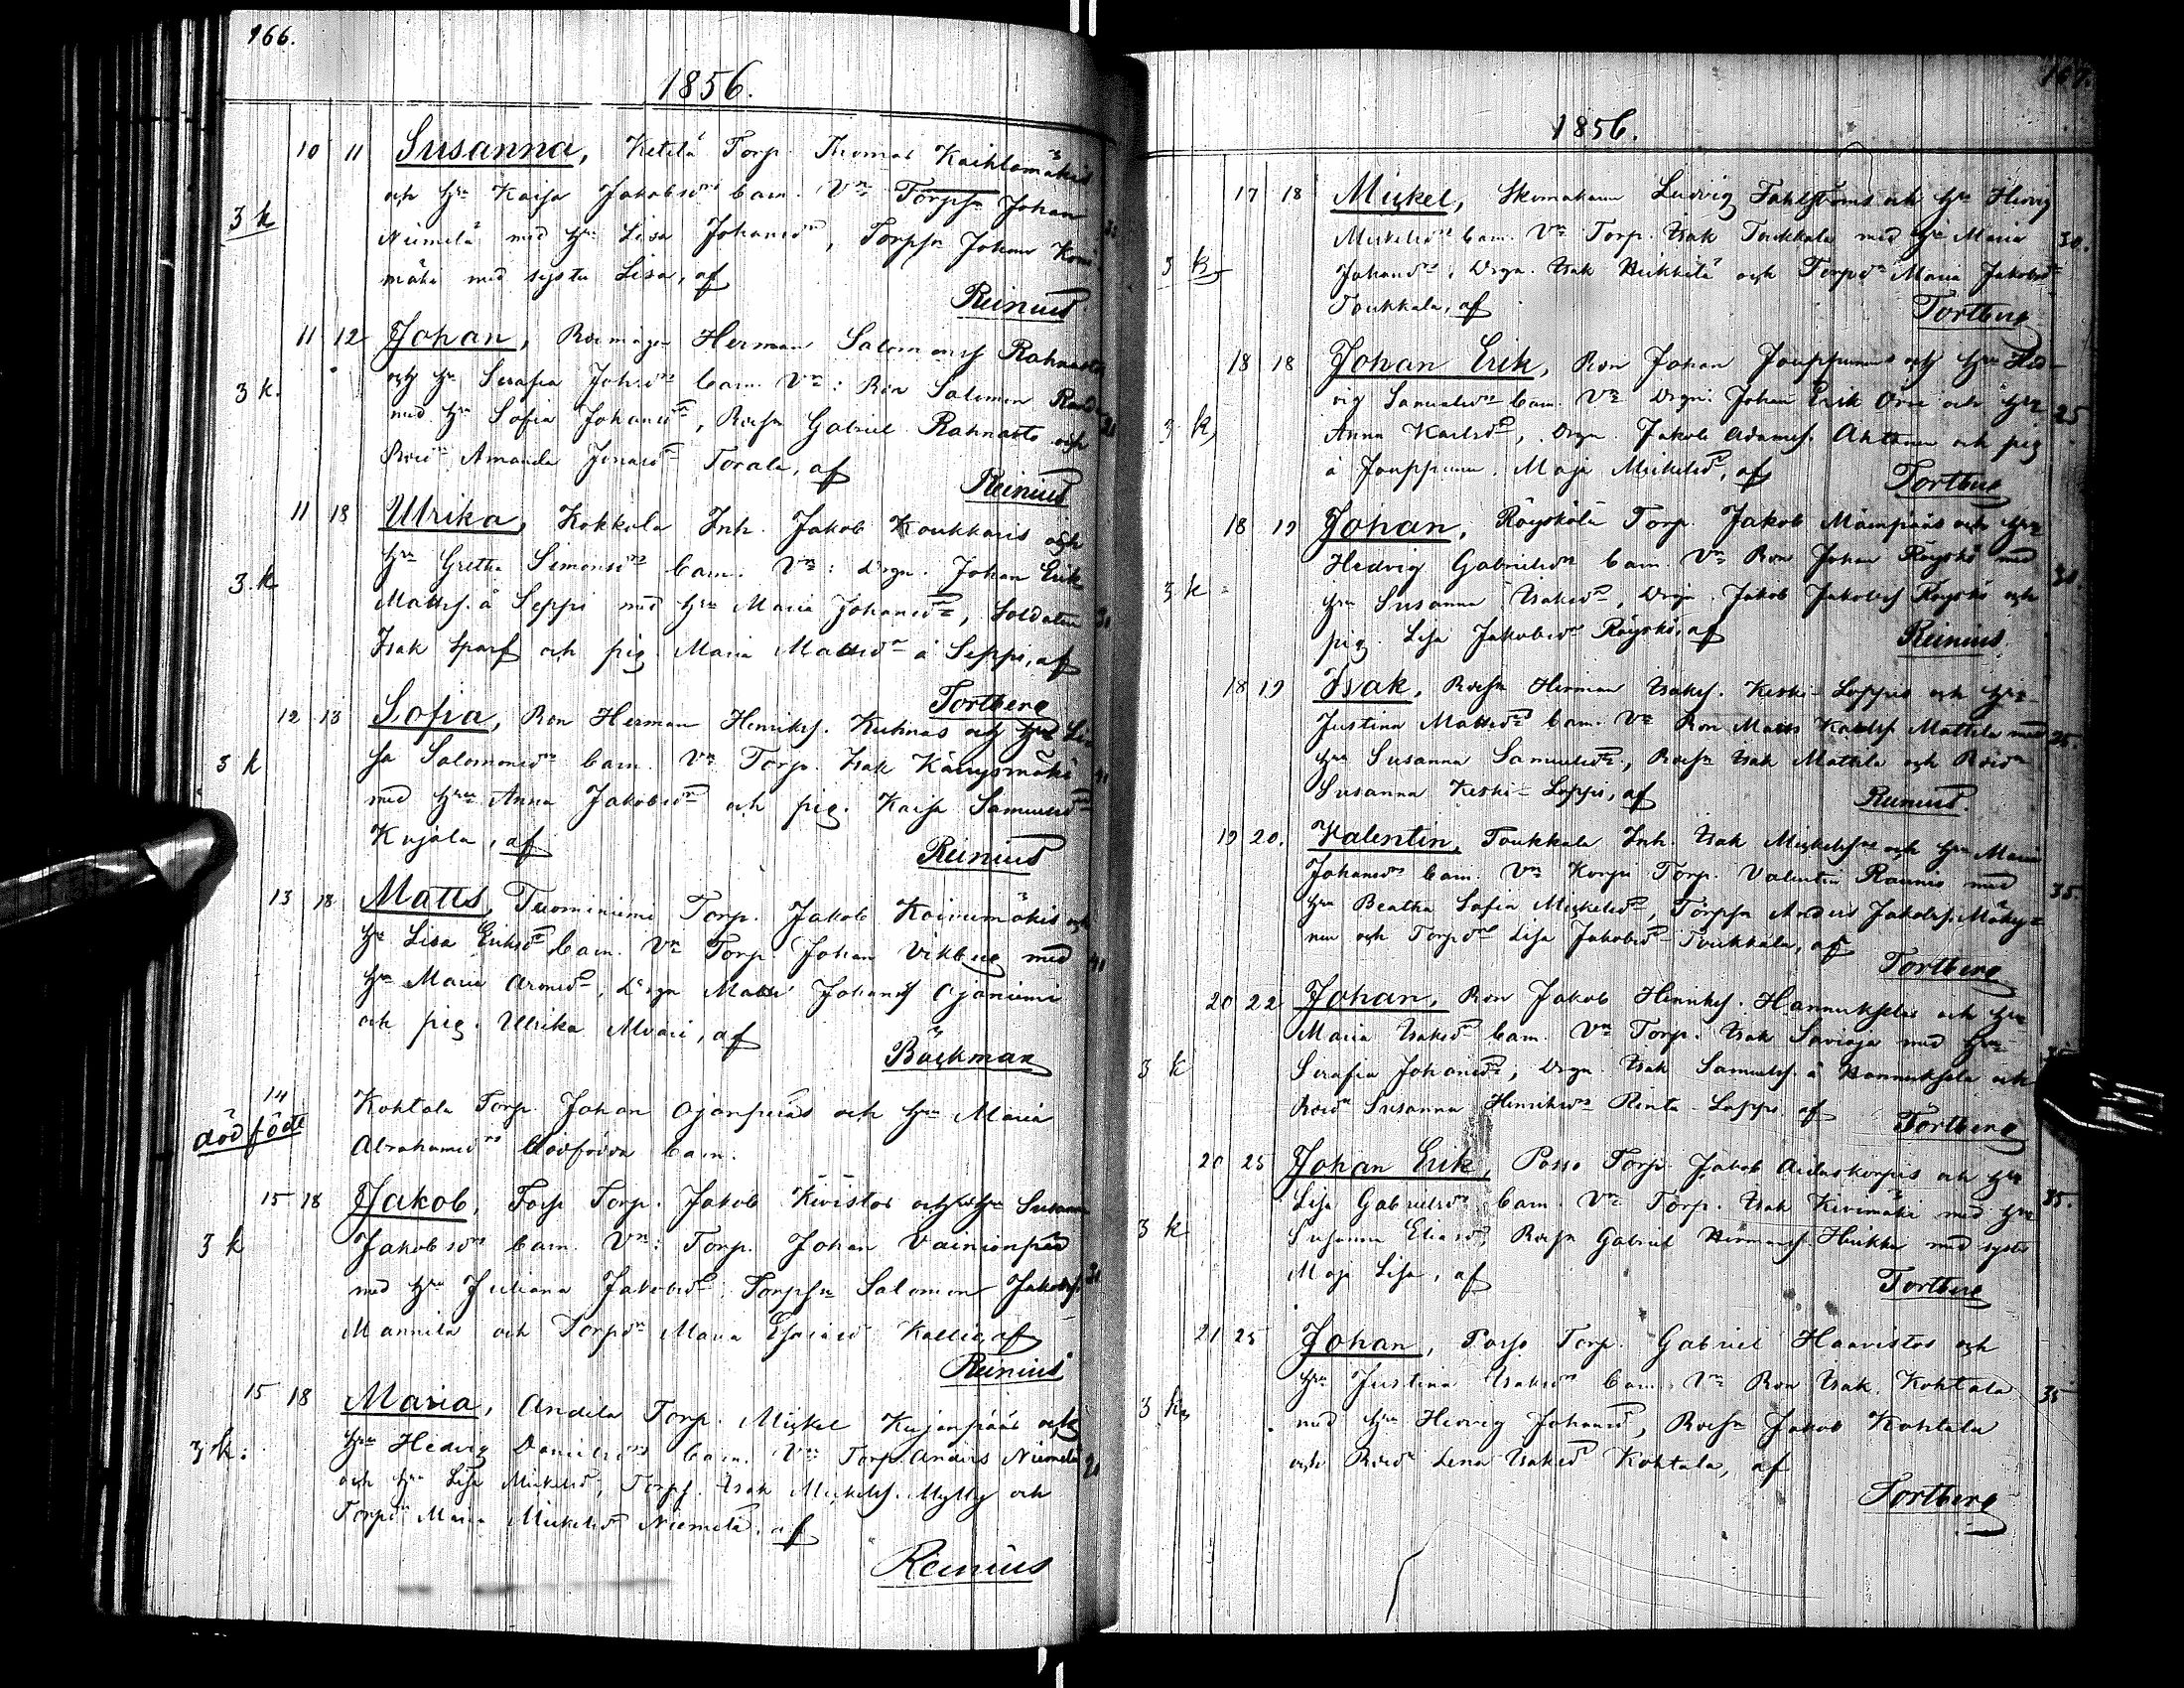 166.
1856.
10 11 Susanna, Ketola Torp. Thomas Kaihlamäkis
och Hu Kaisa Jakobsdrs barn. Vn Torpsn Johan
3 k Niemelä med Hu Lisa Johansdr, Torpsn Johan
mäki med syster Lisa, af
Reinius
11 12 Johan, Herman Salomonss Rahnasto
och Hu Serafia Johsdrs barn. Vn: Bon Salomon
3 k. med Hu Sofia Johansdr, Bosn Gabriel Rahnasto och
Bodr Amanda Torala, af
Reinius
11 18 Ulrika, Kokkola Inh. Jakob Koukkaris och
Hu Gretha Simonsdrs barn. Vn: drgn. Johan Erik
3. k Mattss. å Seppi med Hu Maria Johansdr, Soldaten 31
Isak Sparf och pig. Maria Mattsdr å Seppi, af
Tortberg
12 13 Sofia, Bon Herman Henrikss. Kuhnas och Hu Li-
sa Salomonsdrs barn. Vn Torp. Isak Kangasmäki 41
3 k med Hu Anna Jakobsdr och pig. Kaisa Samuelsdr
Kujala, af
Reinius
13 18 Matts, Tuominiemi Torp. Jakob Koivumäkis och
Hu Lisa Eriksdrs barn. Vn Torp. Johan Vikberg med 41
Hu Maria, drgn Matts Johanss Ojaniemi
och pig. Ulrika, af
Bäckman
14 Kohtala Torp. Johan Ojanpääs och Hu Maria
dödfödt Abrahamsdrs dödfödda barn.
15 18 Jakob, Torp. Jakob Kivistös och Hu Susanna
3 k Jakobsdrs barn. Vn: Torp. Johan Vainionpää
med Hu Juliana Jakobsdr, Torpsn Salomon Jakobss. 31
Mannila och Torpdr Maria Kallio, af
Reinius
15 18 Maria, Andila Torp. Mickel Kujanpääs och
Hu Hedvig Danielsdrs barn. Vn Torp. Anders Niemelä
3 k. och Hu Lisa Mickelsdr, Torps. Isak Mickelss. Mylly och
Torpdr Maria Mickelsdr Niemelä, af
Reinius
167.
1856.
17 18 Mickel, Skomakaren Ludvig Fahlströms och Hu Hedvig
Mickelsdrs barn. Vn Torp. Isak Toukkala med Hu Maria 30.
3 k, Johansdr, Drgn. Isak Heikkilä och Torpdr Maria Jakobsdr
Toukkala, af
Tortberg
18 18 Johan Erik, Bon Johan Jouppinens och Hu Hed-
vig Samuelsdrs barn. Vn Drgn. Johan Erik och Hu 25
3 k, Anna Karlsdr, Drgn. Jakob Adamss. Ahtonen och pig
å Jouppinen, Maja Mickelsdr, af
Tortberg
18 19 Johan, Röyskölä Torp. Jakob Mäenpääs och Hu
Hedvig Gabrielsdrs barn. Vn Bon Johan Röyskö med
3 k Hu Susanna Isaksdr, Drgn. Jakob Jakobss Röyskö och
pig. Lisa Jakobsdr Röyskö, af
Reinius
18 19 Isak, Bosn Herman Isakss. Keski-Loppis och Hu
Justina Mattsdrs barn. Vn Bon Matts Karlss Mattila med 25.
Hu Susanna Samuelsdr, Bosn Isak Mattila och Bodr
Susanna Keski-Loppi, af
Reinius.
19 20. Valentin, Toukkala Inh. Isak Mickelssons och Hu Maria
Johansdrs barn. Vn Korpi Torp. Valentin Raunio med 35.
Hu Beatha Sofia Mickelsdr, Torpsn Anders Jakobss. Mäky-
nen och Torpdr Lisa Jakobsdr Toukkala, af
Tortberg
20 22 Johan, Bon Jakob Henrikss. Hannukselas och Hu
Maria Isaksdrs barn. Vn Torp. Isak Savioja med Hu
3 k Serafia Johansdr, Drgn. Isak Samuelss. å Hannuksela och
Bodr Susanna Henriksdr Rinta-Loppi af
Tortberg
20 25 Johan Erik, Posso Torp. Jakob och Hu
Lisa Gabrielsdrs barn. Vn Torp. Isak Kivimäki med Hu 35.
3 k Susanna Eliasdr, Bosn Gabriel Hermanss. Heikka med syster
Maja Lisa, af
Tortberg
21 25 Johan, Posso Torp. Gabriel Haavistos och
Hu Justina Isaksdrs barn. Vn Bon Isak Kohtala 35
3 k, med Hu Hedvig Johansdr, Bosn Jakob Kohtala
och Bodr Lena Isaksdr Kohtala, af
Tortberg